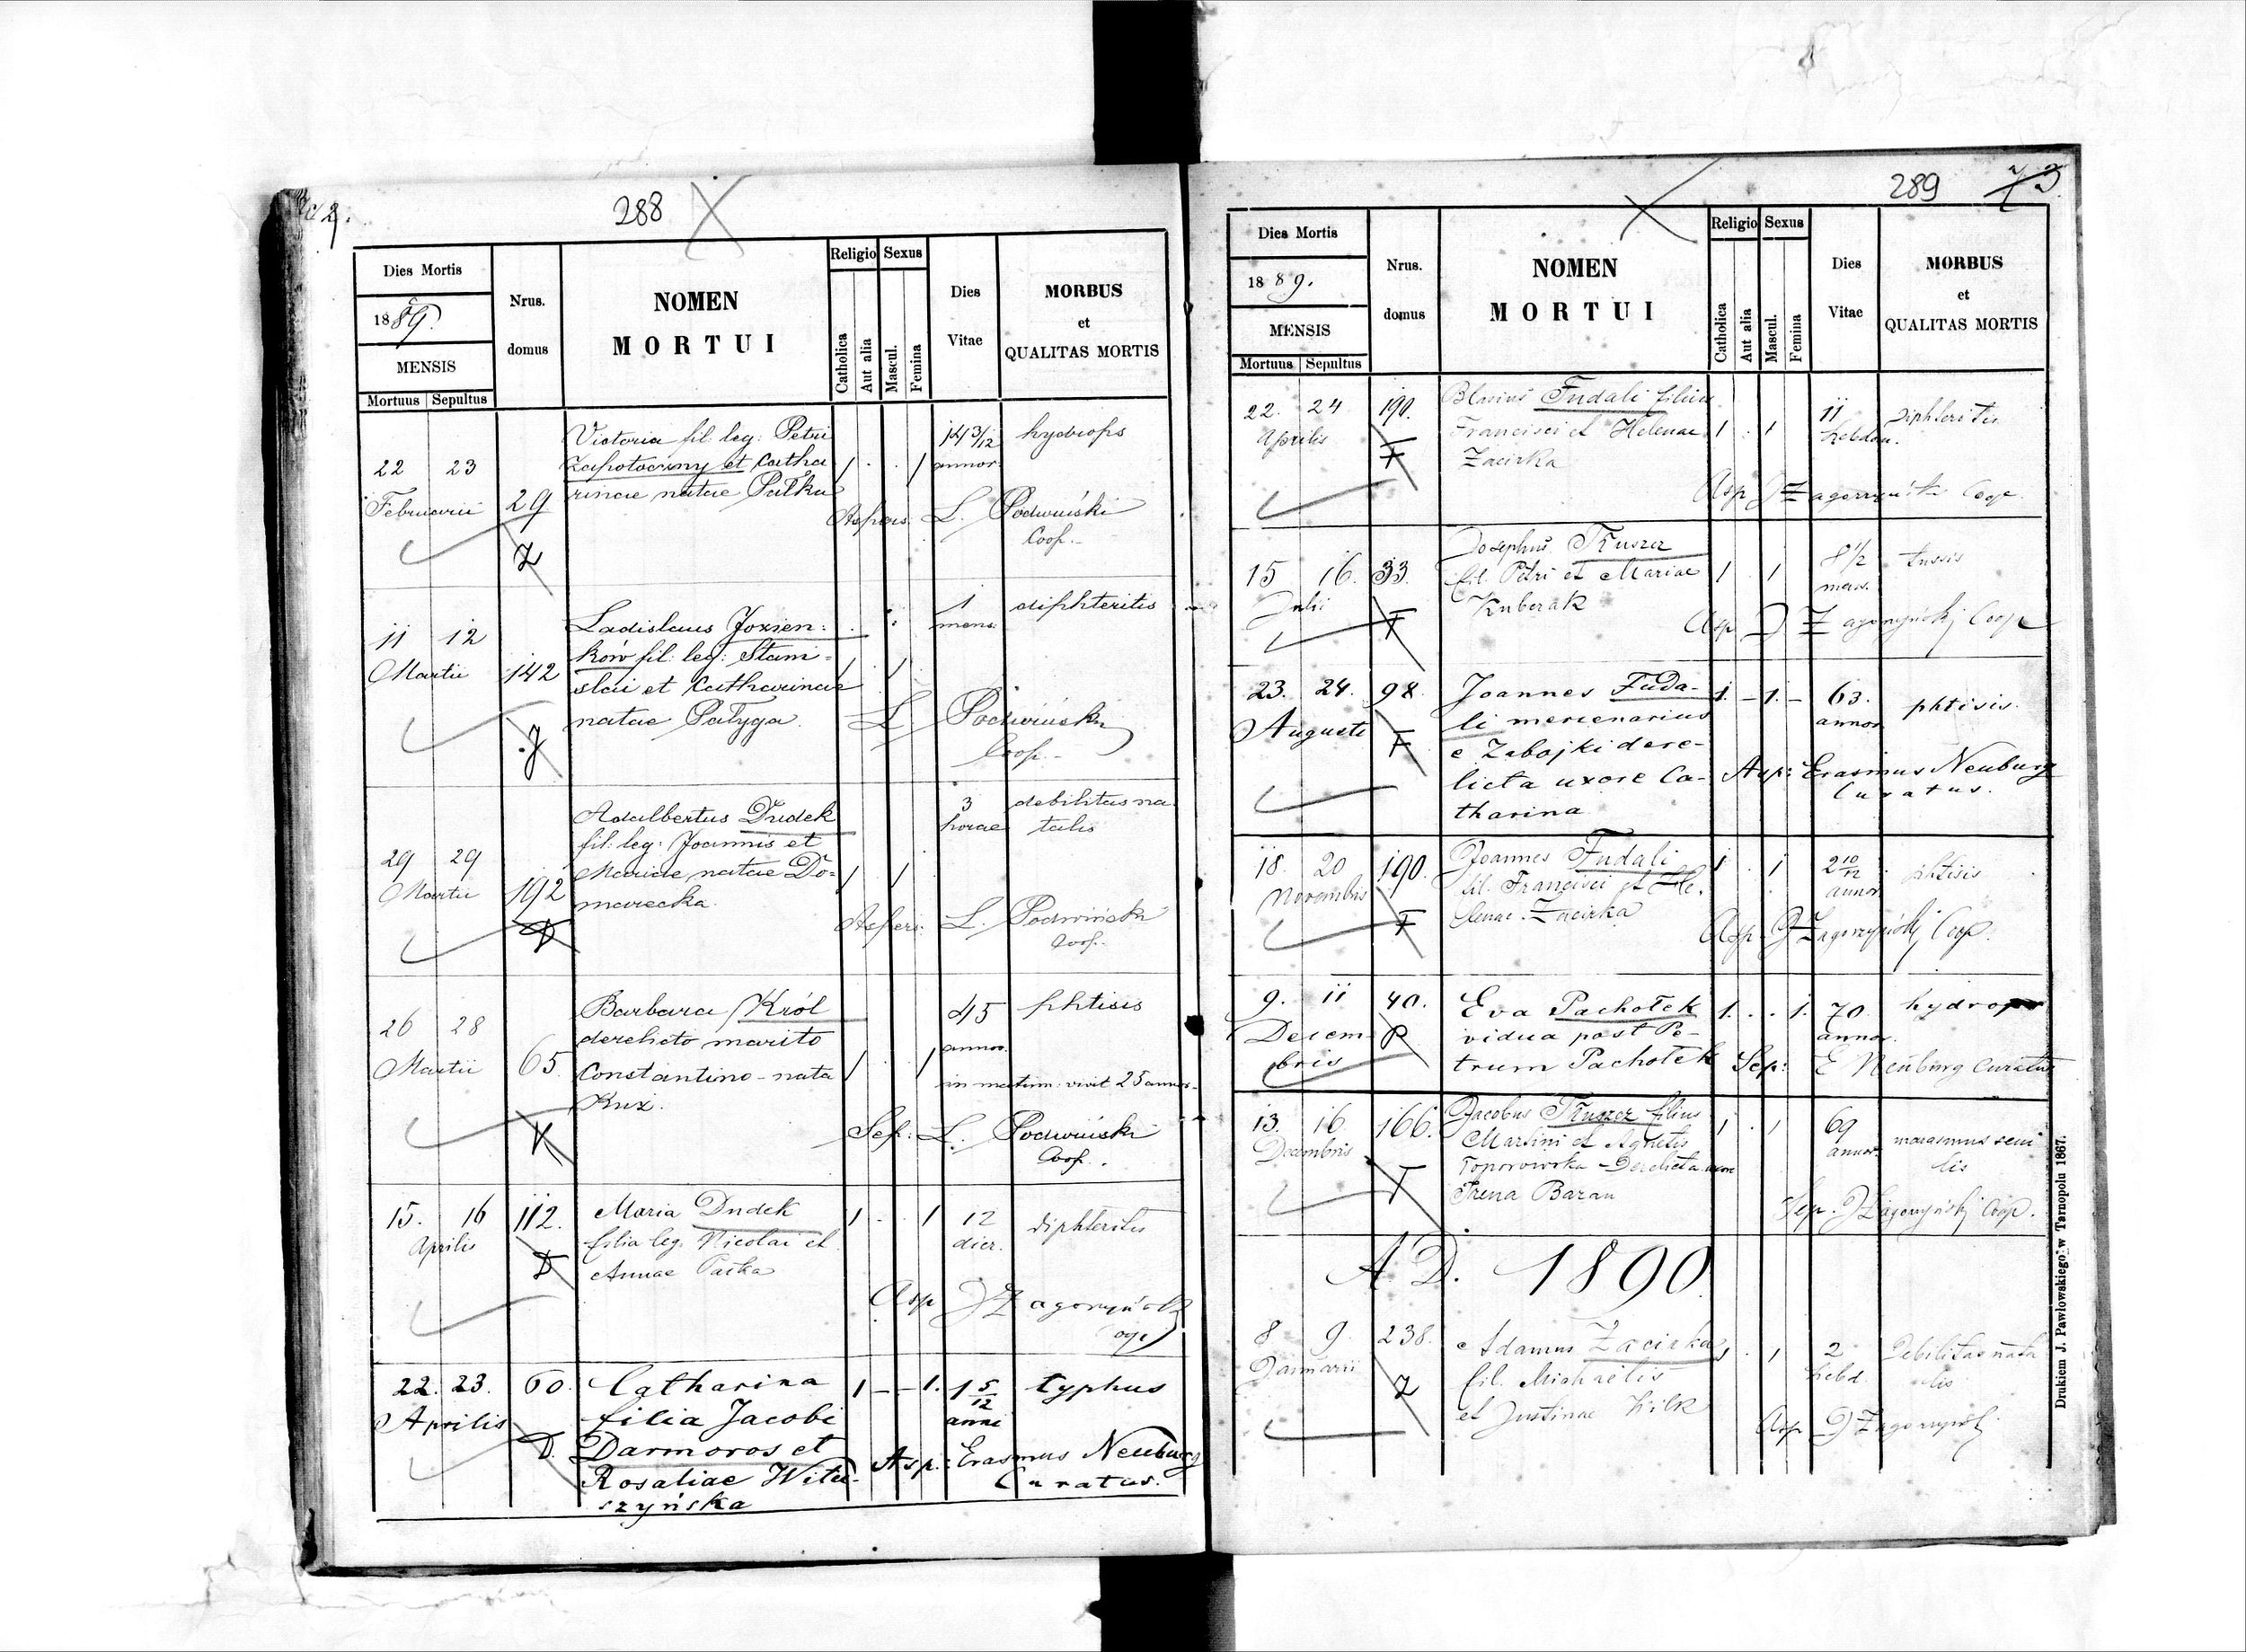 288
Dies Mortis
1889.
MENSIS
Mortuus Sepultus
Nrus.
domus
NOMEN
MORTUI
Religio Sexus
Catholica
Aut alia
Mascul.
Femina
Dies
Vitae
MORBUS
et
QUALITAS MORTIS
Victoria fil: leg: Petri 14 3/12 hydrops
22 23 Zapotoczny et Catha 1 . . 1 annor.
Februarii 29 rinae natae Pałka
Aspers. L. Podwiński
Coop.
Z
1 diphteritis
11 12 Ladislaus Jozien: mens.
Martii 142 ków fil: leg: Stani- 1 1
slai et Catharinae
natae Pałyga. L Podwiński
J Coop.
Adalbertus Dudek 3 debilitas na
fil: leg: Joannis et horae talis
29 29 Mariae natae Do- 1 1
Martii 192 marecka.
D Aspers: L. Podwiński
Coop.
Barbara Król 45 phtisis
26 28 derelicto marito annor.
Martii 65 Constantino - nata 1 1 in matrim: vivit 25 annor.
K Sep: L. Podwiński
Coop.
15. 16 112. Maria Dudek 1 . . 1 12 diphteritis
Aprilis filia leg. Nicolai et dier.
D Annae Pałka
Asp J Zagorzyński
22. 23. 60. Catharina 1 - - 1. 1 5/12 typhus
Aprilis filia Jacobi anni
D. Darmoros et Asp: Erasmus Neuburg
Rosaliae Witu- Curatus.
szyńska
289 73
Dies Mortis
1889.
MENSIS
Mortuus Sepultus
Nrus.
domus
NOMEN
MORTUI
Religio Sexus
Catholica
Aut alia
Mascul.
Femina
Dies
Vitae
MORBUS
et
QUALITAS MORTIS
22. 24 190. Blasius Fudali filius 11 diphteritis
Aprilis Francisci et Helenae 1 . 1 hebdom.
F Zacirka
Asp J Zagorzyński Coop.
Josephus Tłuszcz 8 1/2 tussis
15 16. 33. fil. Petri et Mariae 1 . 1 mens.
Julii Kuberak
T Asp J Zagorzyński Coop
23. 24. 98. Joannes Fuda- 1. - 1. - 63. phtisis.
Augusti li mercenarius annor
F e Zabojki dere-
licta uxore Ca- Asp: Erasmus Neuburg
tharina Curatus.
18. 20 190. Joannes Fudali 1 . 1 2 10/12 phtisis
Novembris fil. Francisci et He- annor
F lenae Zacirka Asp. J Zagorzyński Coop.
9. 11 40. Eva Pachołek 1. . . 1. 70 hydrops
Decem P vidua post Pe- annor.
bris trum Pachołek Sep: E Neuburg Curatus
13. 16. 166. Jacobus Tłuszcz filius 1 . 1 69 marasmus seni
Decembris Martini et Agnetis annor. lis
Toporowska - Derelicta uxore
T Irena Baran Sep. J Zagorzyński Coop.
A. D. 1890
8 9. 238. Adamus Zacirka 1 . 1 2 Debilitas nata
Januarii fil. Michaelis hebd. lis
Z et Justinae Wilk
Asp J Zagorzyńsk
Drukiem J. Pawlowskiego w Tarnopolu 1867.